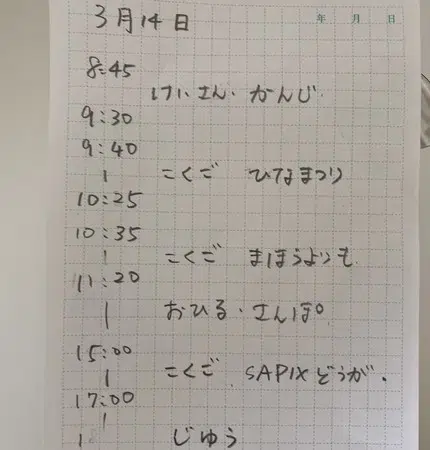 年 月 日
3月14日
8:45
けいさん・かんじ
9:30
9:40
| こくご ひなまつり
10:25
10:35
| こくご まほうよりも
11:20
| おひる・さんぽ。
15:00
| こくご SAPIXどうが.
17:00
|
じゆう